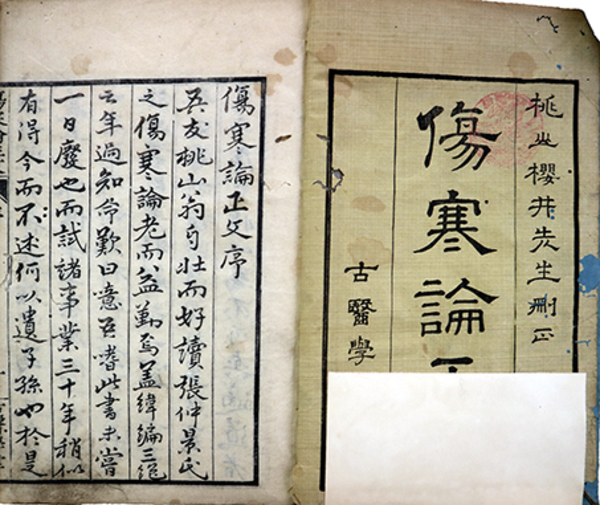 桃山櫻井先生刪正
傷寒論
古醫學
傷寒論正文序
吾友桃山翁自壯而好讀張仲景氏
之傷寒論老而益勤焉蓋緯編三絕
云年過知命歎曰噫吾嗜此書未嘗
一日廢也而試諸事業三十年稍似
有得今而不述何以遺子孫也於是